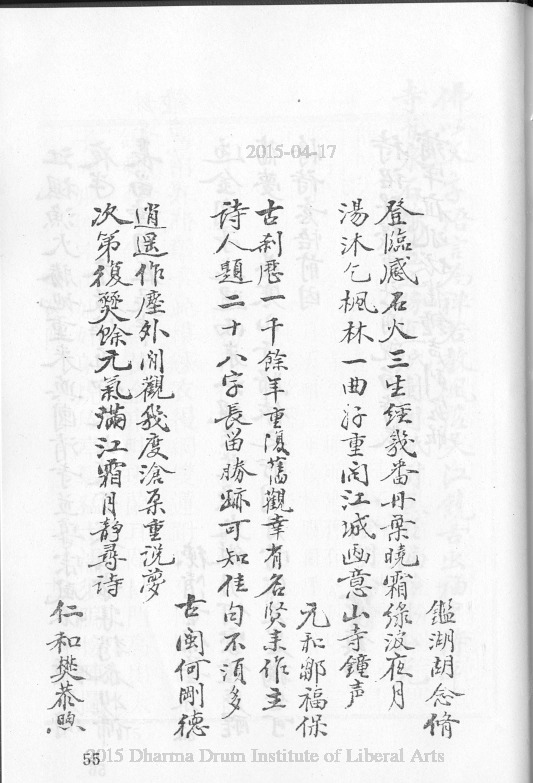 2015-04-17
鑑湖胡念脩
登臨感石火三生經幾番丹葉曉霜綠波夜月
湯沐乞楓林一曲好重閱江城畫意山寺鐘声
元和鄒福保
古刹歷一千餘年重復舊觀幸有名賢来作主
詩人題二十八字長留勝跡可知佳句不須多
古閩何剛德
逍遥作塵外閒觀幾度滄桒重說夢
次第復爨餘元氣滿江霜月靜尋詩
仁和樊恭煦
55
2015 Dharma Drum Institute of Liberal Arts